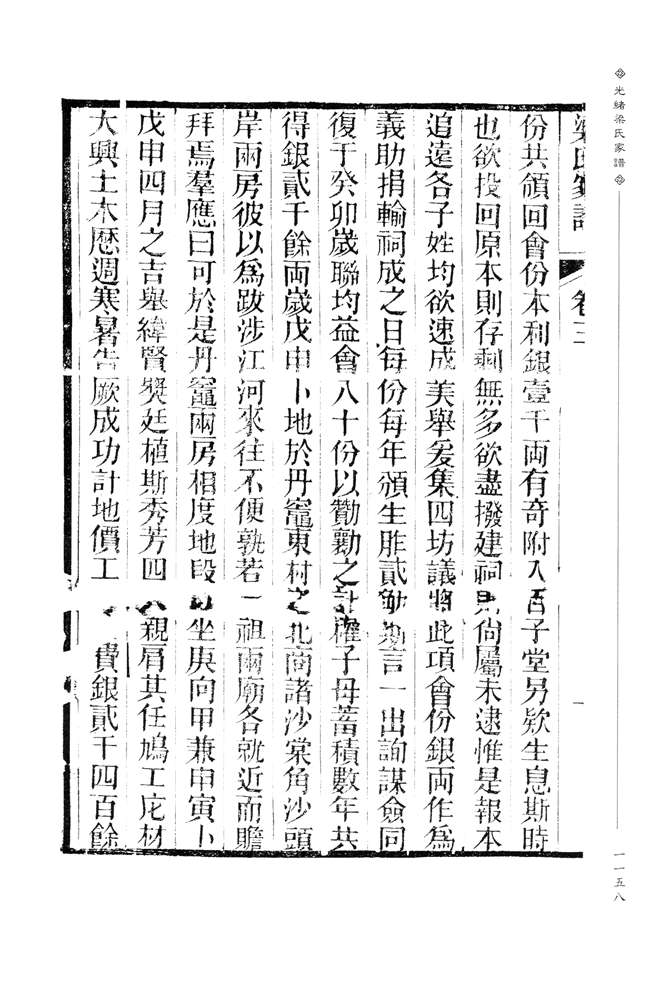 光緒梁氏家譜
一一五八
梁氏家譜 卷三
份共領回會份本利銀壹千両有奇附入百子堂另欵生息斯時
也欲投回原本則存剩無多欲盡撥建祠則尙屬未逮惟是報本
追遠各子姓均欲速成美舉爰集四坊議將此項會份銀両作爲
義助捐輸祠成之日每份每年頒生胙貳觔斯言一出詢謀僉同
復于癸卯歲聯均益會八十份以勷勸之計權子母蓄積數年共
得銀貳千餘両歲戊申卜地於丹竈東村之北商諸沙棠角沙頭
岸兩房彼以爲跋涉江河來往不便孰若一祖兩廟各就近而瞻
拜焉羣應曰可於是丹竈兩房相度地段坐庚向甲兼申寅卜
戊申四月之吉舉緯賢奬廷植斯秀芳四人親肩其任鳩工庀材
大興土木歷週寒暑告厥成功計地價工費銀貳千四百餘